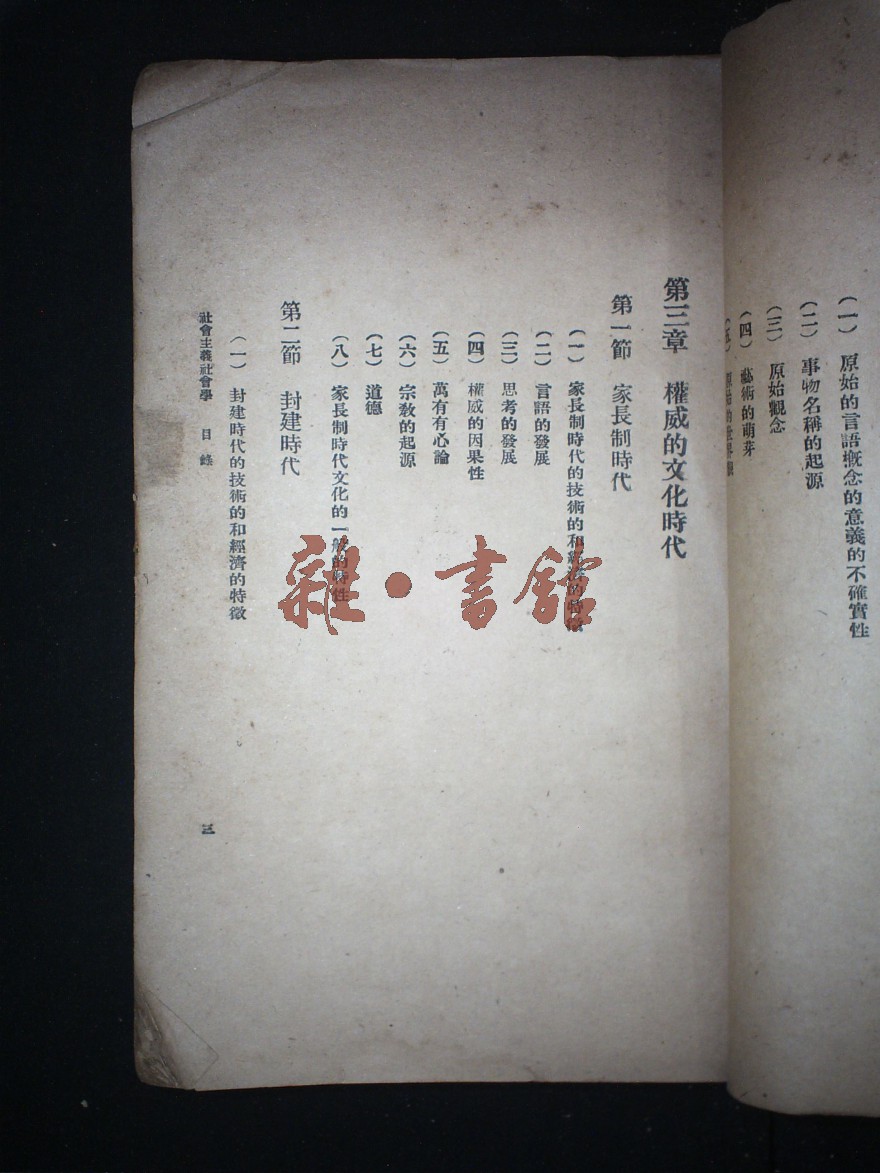 （一）　原始的言語概念的意義的不確實性
（二）　事物名稱的起源
（三）　原始觀念
（四）　藝術的萌芽
（五）　原始的世界觀
第三章　權威的文化時代
第一節　家長制時代
（一）　家長制時代的技術的和經濟的特徵
（二）　言語的發展
（三）　思考的發展
（四）　權威的因果性
（五）　萬有有心論
（六）　宗教的起源
（七）　道德
（八）　家長制時代文化的一般的特性
第二節　封建時代
（一）　封建時代的技術的和經濟的特徵
社會主義社會學　目錄
三
雜·書館